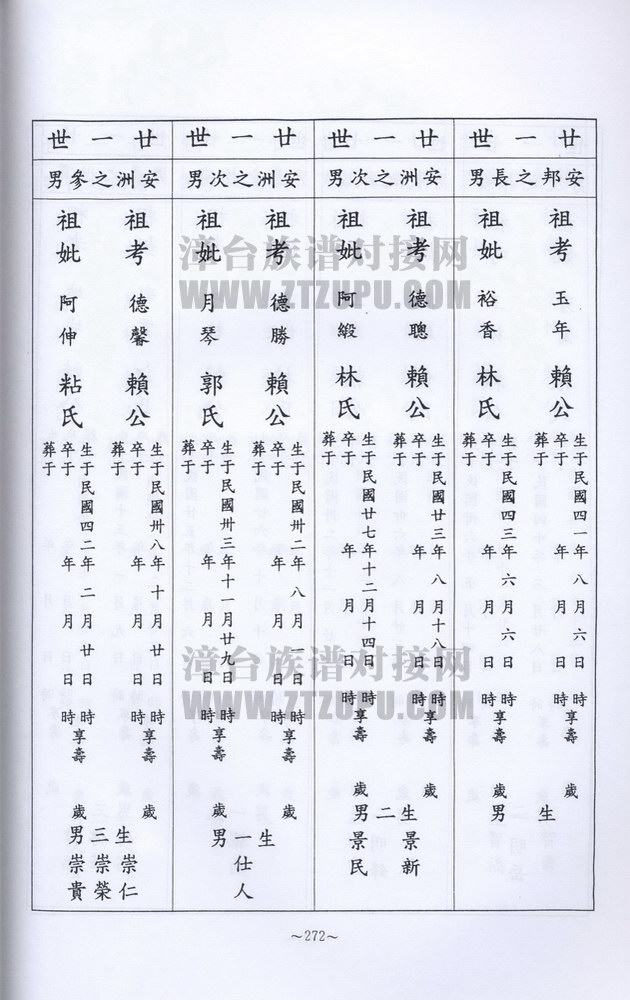 廿一世
安邦之長男
祖考 玉年 賴公
生于民國四一年八月六日 時享壽 歲
卒于 年 月 日 時
葬于
祖妣 裕香 林氏
生于民國四三年六月六日 時享壽
卒于 年 月 日 時
葬于
生 男
廿一世
安洲之次男
祖考 德聰 賴公
生于民國廿三年八月十八日 時享壽 歲
卒于 年 月 日 時
葬于
祖妣 阿緞 林氏
生于民國廿七年十二月十四日 時享壽 歲
卒于 年 月 日 時
葬于
生二男
景新
景民
廿一世
安洲之次男
祖考 德勝 賴公
生于民國卅二年八月一日 時享壽 歲
卒于 年 月 日 時
葬于
祖妣 月琴 郭氏
生于民國卅三年十一月廿九日 時享壽 歲
卒于 年 月 日 時
葬于
生一男
仕人
廿一世
安洲之參男
祖考 德馨 賴公
生于民國卅八年十月廿日 時享壽 歲
卒于 年 月 日 時
葬于
祖妣 阿伸 粘氏
生于民國四二年二月廿日 時享壽 歲
卒于 年 月 日 時
葬于
生三男
崇仁
崇榮
崇貴
~272~
漳台族谱对接网
WWW.ZTZUPU.COM
漳台族谱对接网
WWW.ZTZUPU.COM